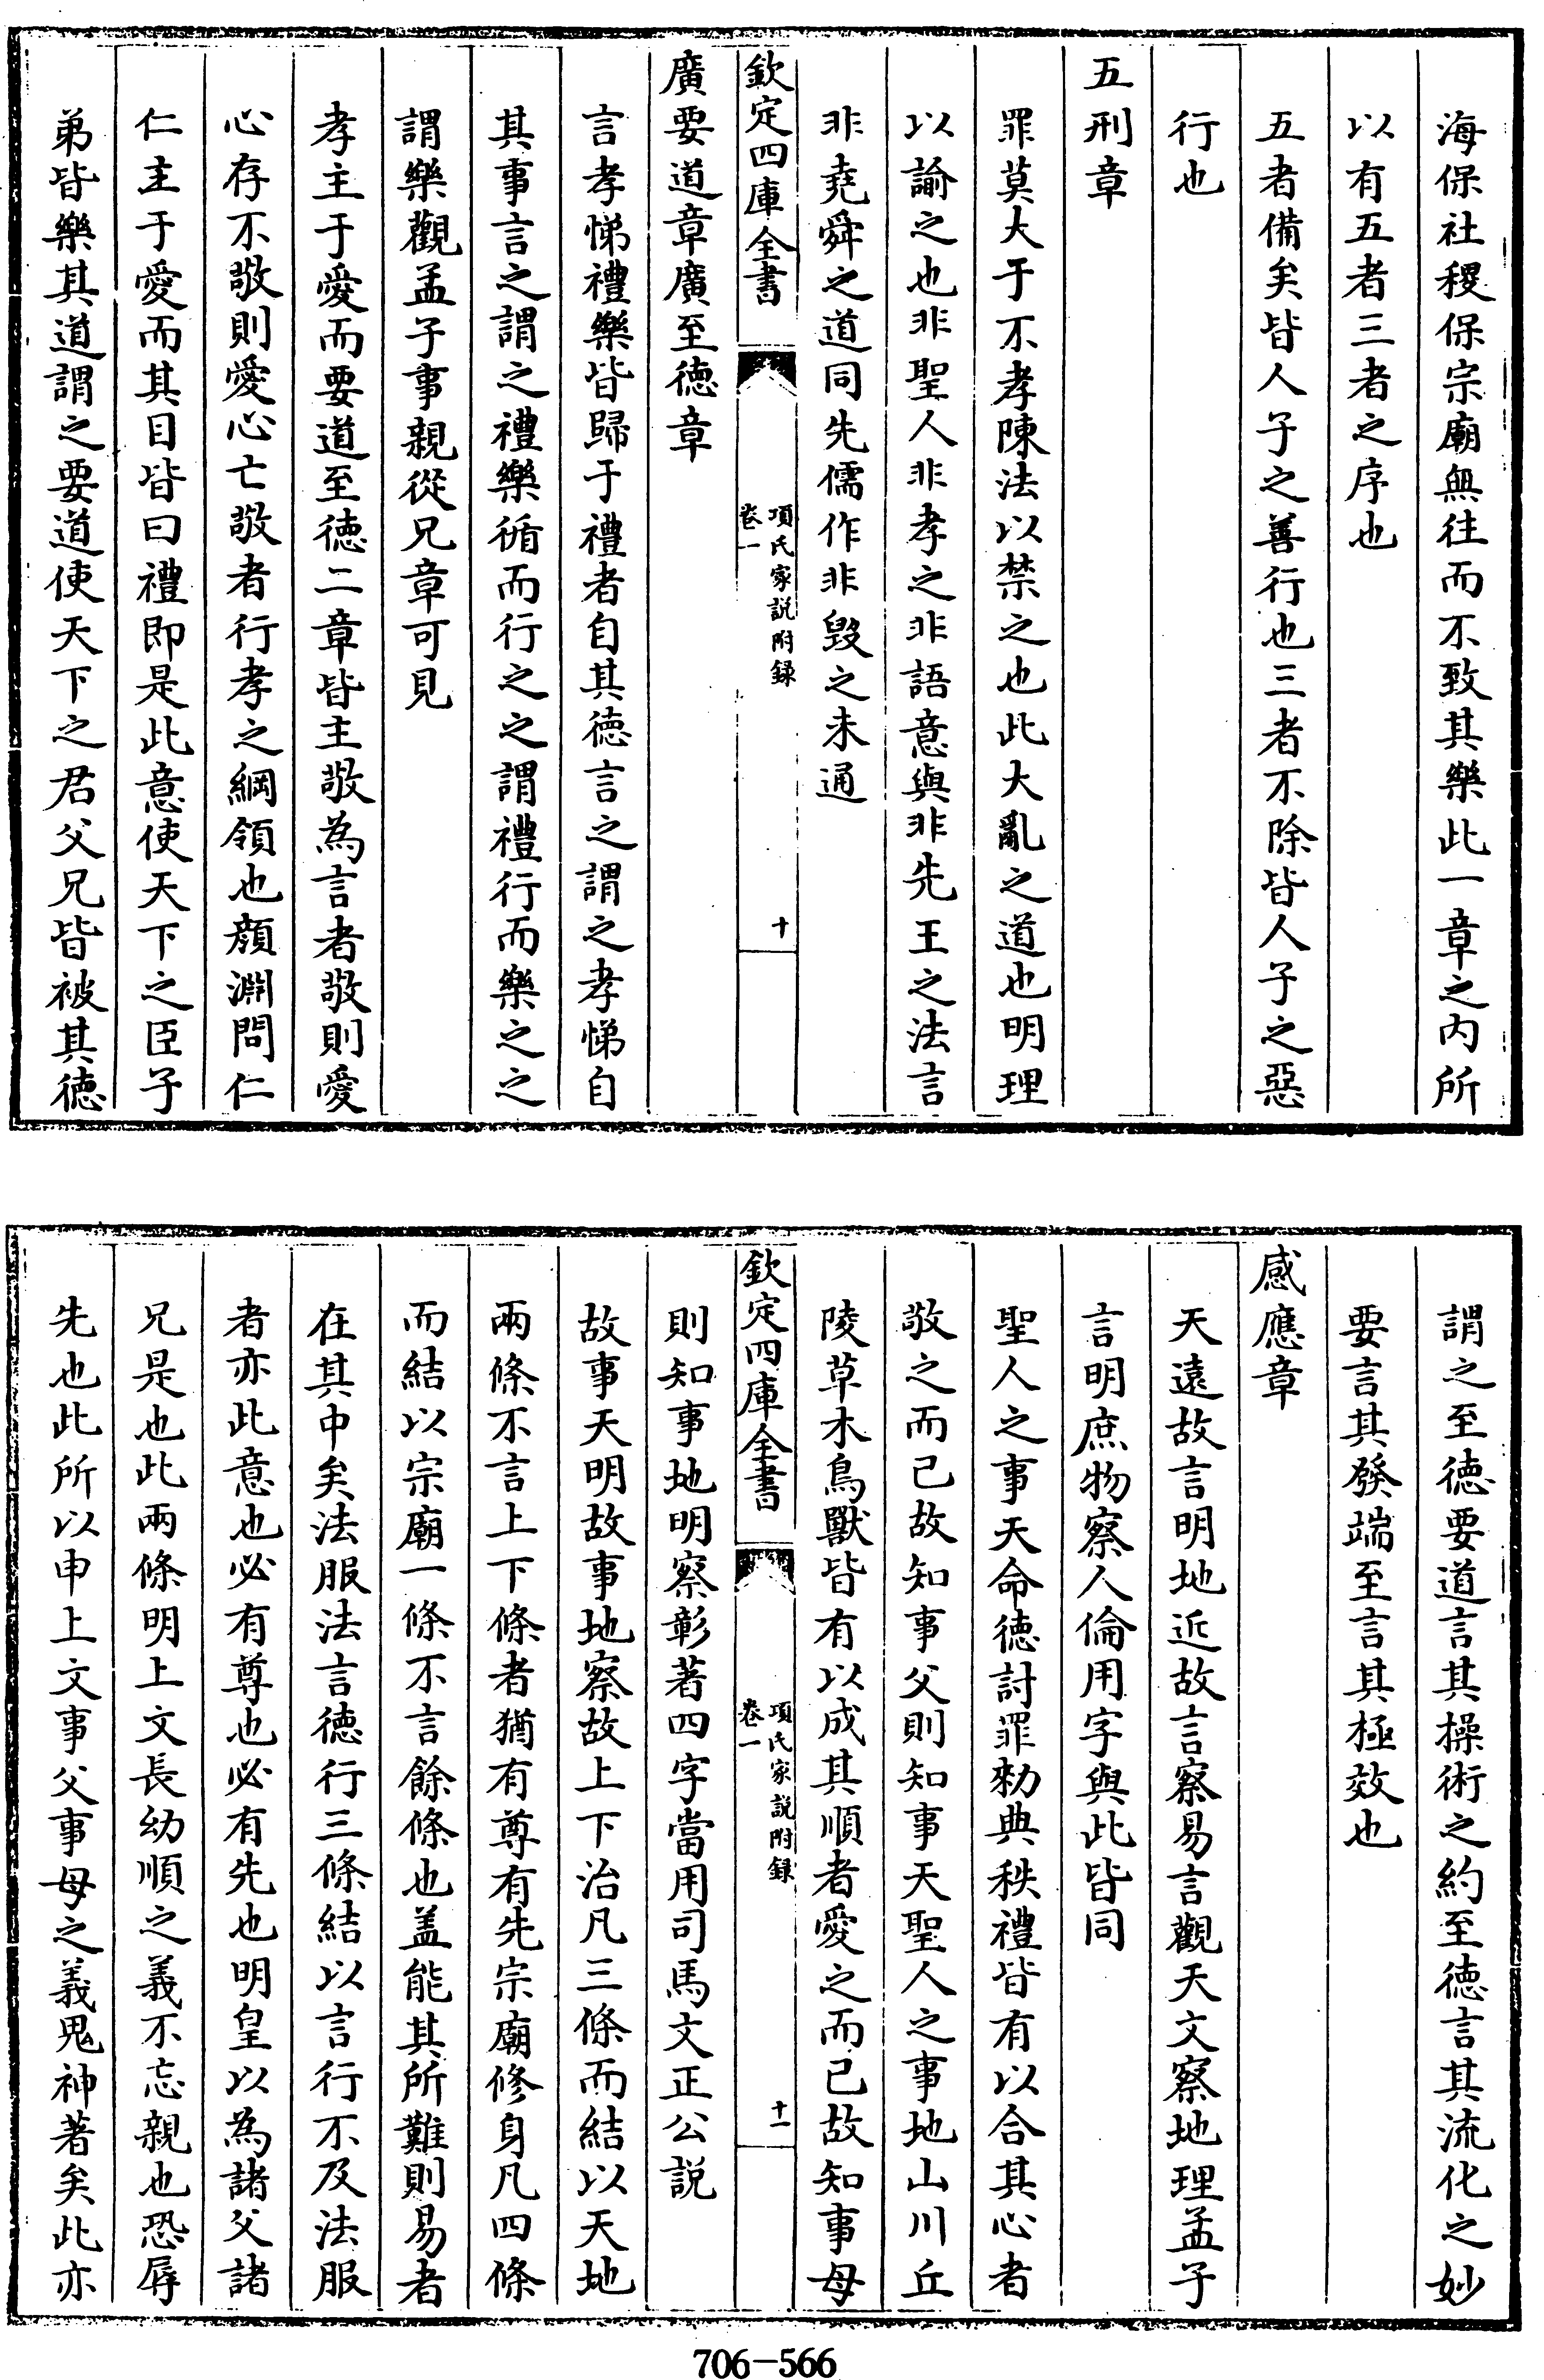 海保社稷保宗廟無往而不致其樂此一章之内所
以有五者三者之序也
五者備矣皆人子之善行也三者不除皆人子之惡
行也
五刑章
罪莫大于不孝陳法以禁之也此大亂之道也明理
以諭之也非聖人非孝之非語意與非先王之法言
非堯舜之道同先儒作非毀之未通
欽定四庫全書
項氏家説附録
卷一
十
廣要道章廣至徳章
言孝悌禮樂皆歸于禮者自其徳言之謂之孝悌自
其事言之謂之禮樂循而行之之謂禮行而樂之之
謂樂觀孟子事親從兄章可見
孝主于愛而要道至徳二章皆主敬為言者敬則愛
心存不敬則愛心亡敬者行孝之綱領也顔淵問仁
仁主于愛而其目皆曰禮即是此意使天下之臣子
弟皆樂其道謂之要道使天下之君父兄皆被其徳
謂之至徳要道言其操術之約至徳言其流化之妙
要言其發端至言其極效也
感應章
天遠故言明地近故言察易言觀天文察地理孟子
言明庶物察人倫用字與此皆同
聖人之事天命徳討罪勑典秩禮皆有以合其心者
敬之而已故知事父則知事天聖人之事地山川丘
陵草木鳥獸皆有以成其順者愛之而已故知事母
欽定四庫全書
項氏家説附録
卷一
十一
則知事地明察彰著四字當用司馬文正公説
故事天明故事地察故上下治凡三條而結以天地
兩條不言上下條者猶有尊有先宗廟修身凡四條
而結以宗廟一條不言餘條也盖能其所難則易者
在其中矣法服法言徳行三條結以言行不及法服
者亦此意也必有尊也必有先也明皇以為諸父諸
兄是也此兩條明上文長幼順之義不忘親也恐辱
先也此所以申上文事父事母之義鬼神著矣此亦
706-566